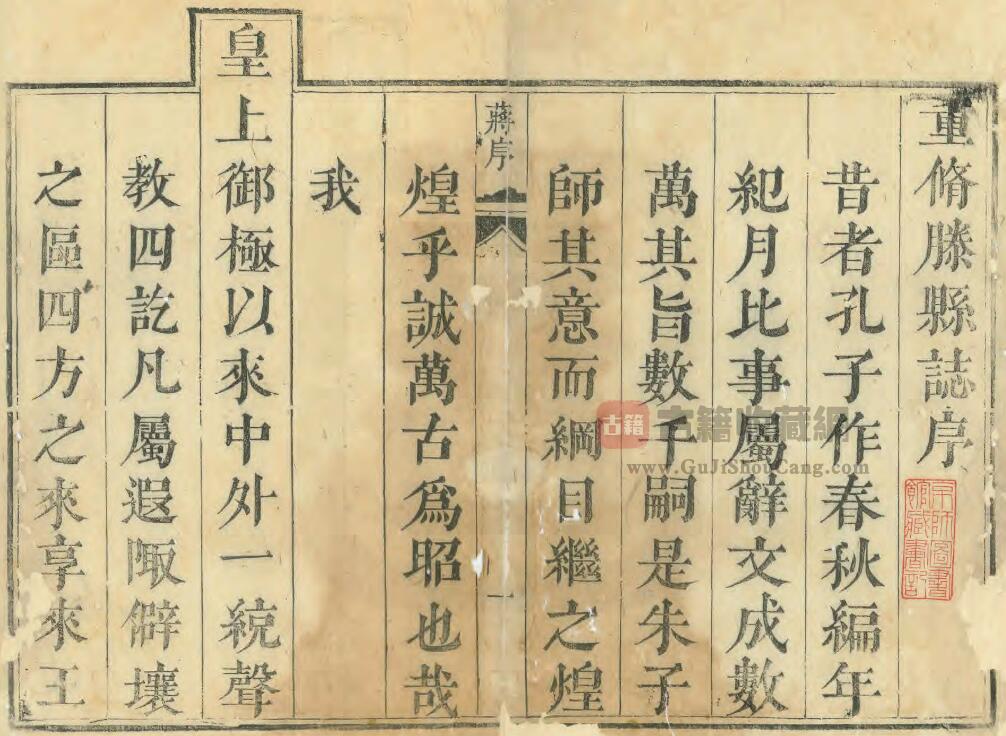 重脩滕縣誌序
昔者孔子作春秋編年
紀月比事屬辭文成數
萬其旨數千嗣是朱子
師其意而綱目繼之煌
蔣序
一
煌乎誠萬古爲昭也哉
我
皇上御極以來中外一統聲
教四訖凡屬遐陬僻壤
之區四方之來享來王
京師圖書
館藏書記
古籍
古籍收藏網
www.GuJiShouCang.com